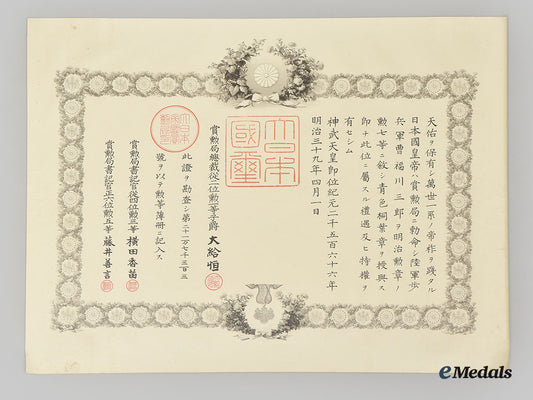 天佑ヲ保有シ萬世一系ノ帝祚ヲ踐タル
日本國皇帝ハ賞勲局ニ勅命シ陸軍步
兵軍曹福川三郎ヲ明治勲章ノ
勲七等ニ敘シ青色桐葉章ヲ授與ス
即チ此位ニ屬スル禮遇及ヒ特權ヲ
有セシム
神武天皇即位紀元二千五百六十六年
明治三十九年四月一日
大日本國璽
賞勲局總裁從二位勲一等子爵大給恒
此證ヲ勘査シ第二十一万七千三百三
號ヲ以テ勲等簿冊ニ記入ス
賞勲局書記官從四位勲三等橫田香苗
賞勲局書記官正六位勲五等藤井善言
eMedals